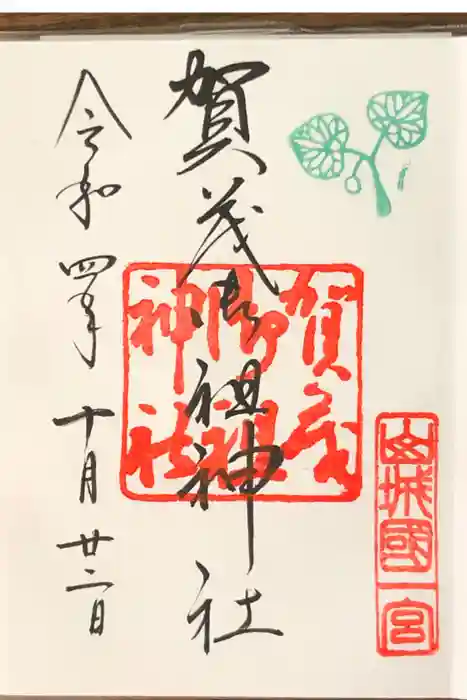 山城國一宮
賀茂御祖神社
賀茂御祖神社
令和四年十月廿二日